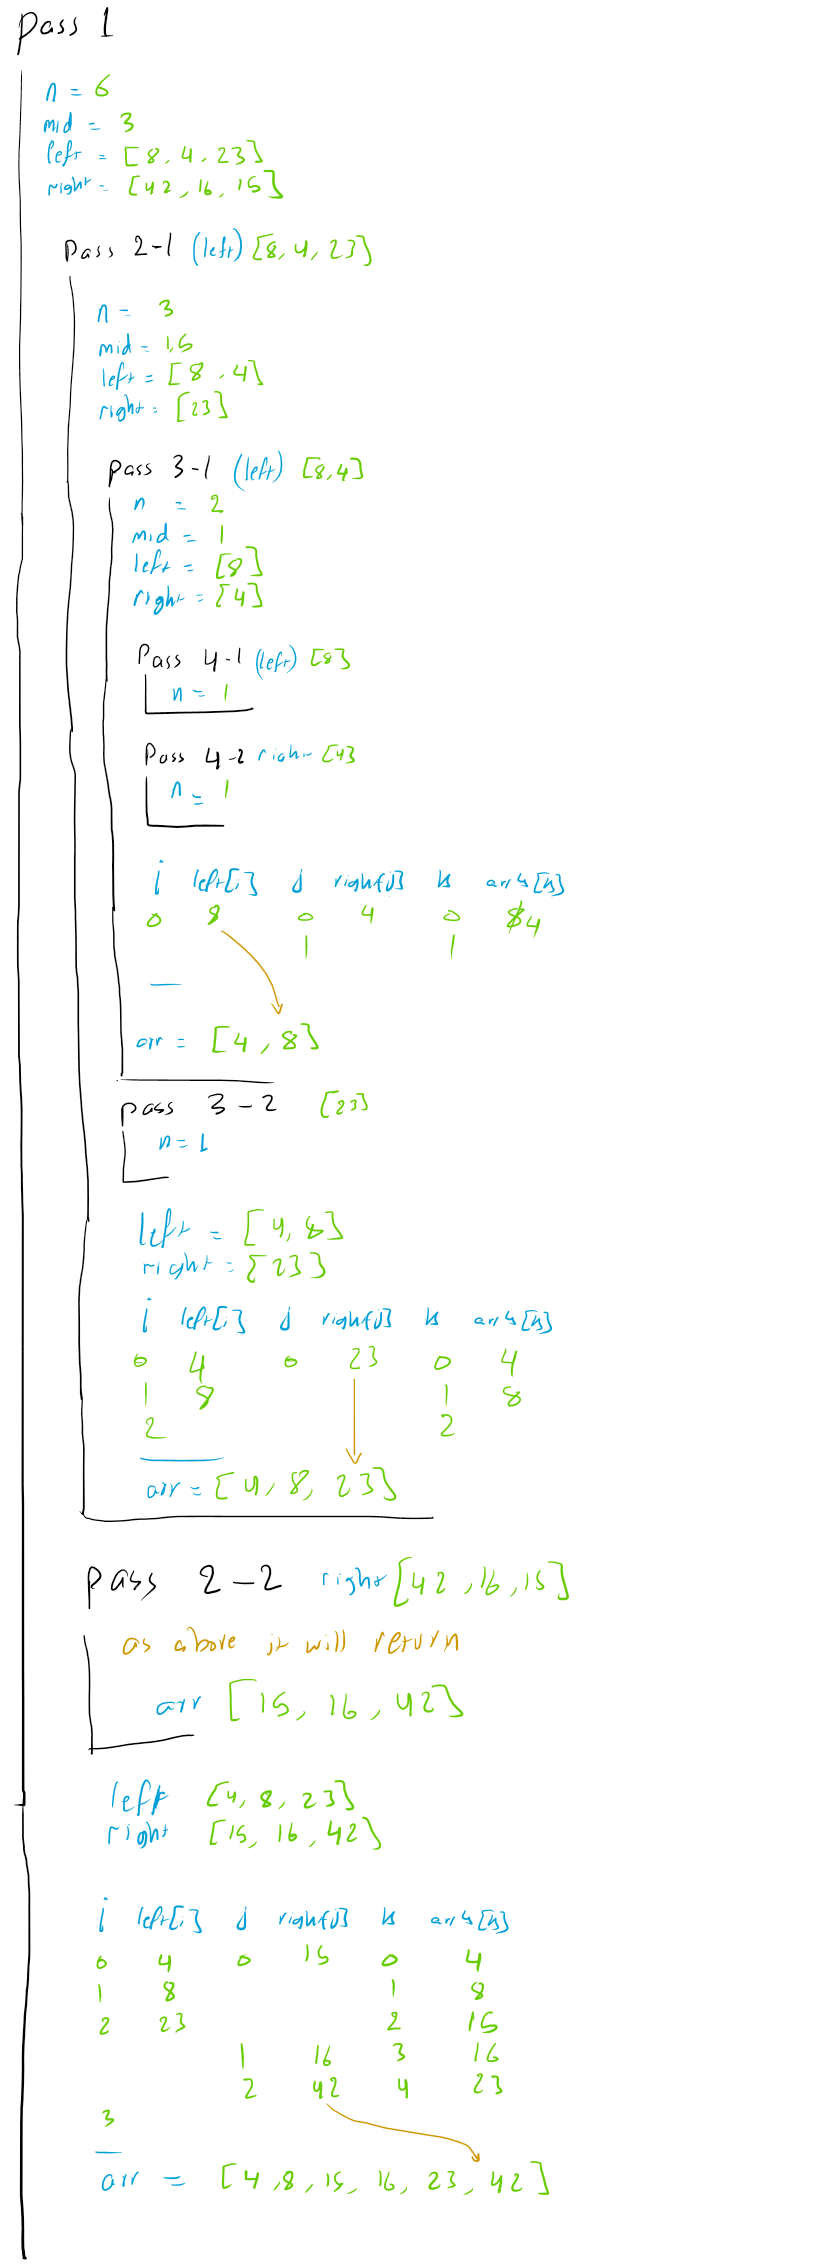 Pass 1
n = 6
mid = 3
left = [8, 4, 23]
right = [42, 16, 15]
Pass 2-1 (left) [8, 4, 23]
n = 3
mid = 1,5
left = [8, 4]
right = [23]
pass 3-1 (left) [8,4]
n = 2
mid = 1
left = [8]
right = [4]
Pass 4-1 (left) [8]
n = 1
Pass 4-2 right [4]
n = 1
i left[i] j right[j] k arr[k]
0 8 0 4 0 4
1 1
arr = [4, 8]
pass 3-2 [23]
n = 1
left = [4, 8]
right = [23]
i left[i] j right[j] k arr[k]
0 4 0 23 0 4
1 8 1 8
2 2
arr = [4, 8, 23]
pass 2-2 right [42, 16, 15]
as above it will return
arr [15, 16, 42]
left [4, 8, 23]
right [15, 16, 42]
i left[i] j right[j] k arr[k]
0 4 0 15 0 4
1 8 1 8
2 23 2 15
1 16 3 16
2 42 4 23
3
arr = [4, 8, 15, 16, 23, 42]